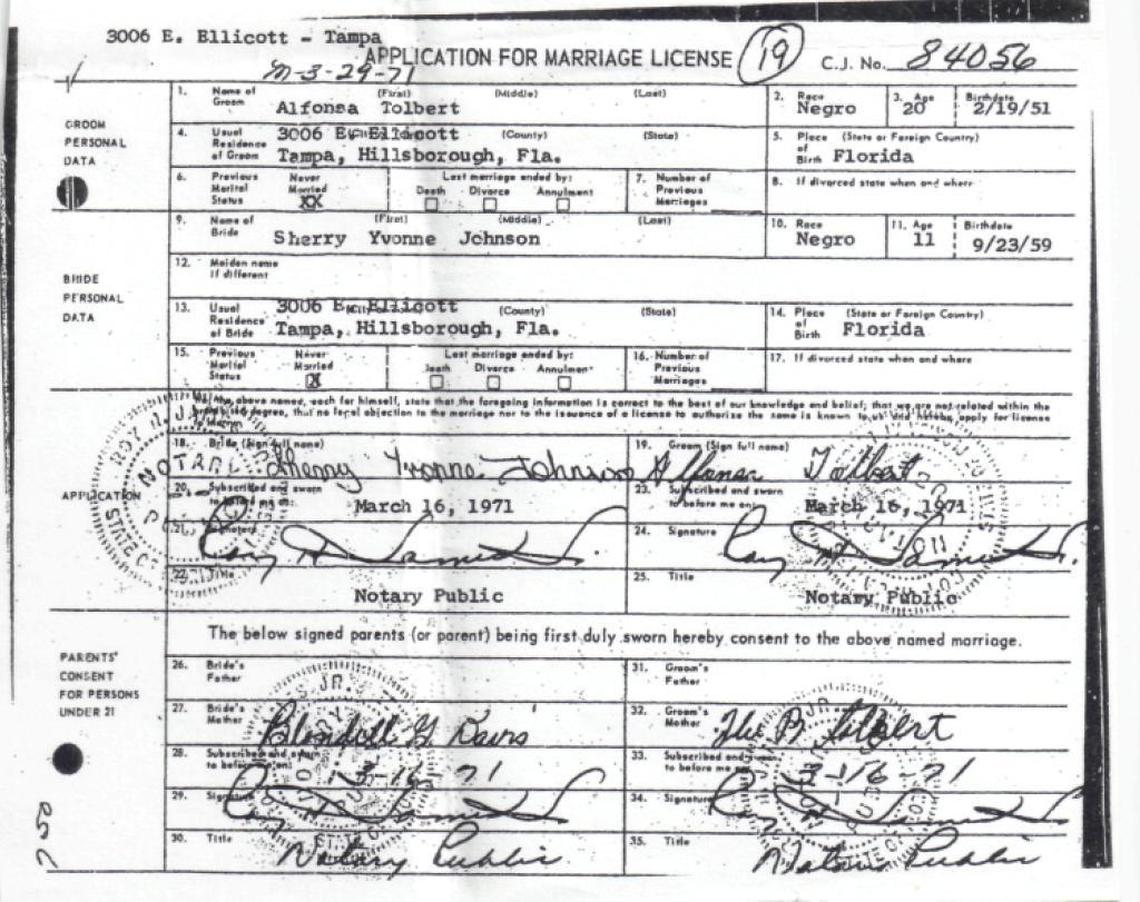 3006 E. Ellicott - Tampa
APPLICATION FOR MARRIAGE LICENSE 19 C.J. No. 84056
M-3-29-71
GROOM PERSONAL DATA
1. Name of Groom (First) (Middle) (Last)
Alfonsa Tolbert
2. Race Negro
3. Age 20
Birthdate 2/19/51
4. Usual Residence of Groom (County) (State)
3006 E. Ellicott
Tampa, Hillsborough, Fla.
5. Place of Birth (State or Foreign Country)
Florida
6. Previous Marital Status Never Married XX
Last marriage ended by: Death Divorce Annulment
7. Number of Previous Marriages
8. If divorced state when and where
BRIDE PERSONAL DATA
9. Name of Bride (First) (Middle) (Last)
Sherry Yvonne Johnson
10. Race Negro
11. Age 11
Birthdate 9/23/59
12. Maiden name if different
13. Usual Residence of Bride (County) (State)
3006 E. Ellicott
Tampa, Hillsborough, Fla.
14. Place of Birth (State or Foreign Country)
Florida
15. Previous Marital Status Never Married X
Last marriage ended by: Death Divorce Annulment
16. Number of Previous Marriages
17. If divorced state when and where
APPLICATION
the above named, each for himself, state that the foregoing information is correct to the best of our knowledge and belief; that we are not related within the
degree, that no legal objection to the marriage nor to the issuance of a license to authorize the same is known to us and hereby apply for license
18. Bride (Sign full name)
Sherry Yvonne Johnson
19. Groom (Sign full name)
Alfonsa Tolbert
20. Subscribed and sworn to before me on:
March 16, 1971
23. Subscribed and sworn to before me on:
March 16, 1971
21. Signature
24. Signature
22. Title
Notary Public
25. Title
Notary Public
PARENTS' CONSENT FOR PERSONS UNDER 21
The below signed parents (or parent) being first duly sworn hereby consent to the above named marriage.
26. Bride's Father
31. Groom's Father
27. Bride's Mother
Blondell G Davis
32. Groom's Mother
B. Tolbert
28. Subscribed and sworn to before me on:
3-16-71
33. Subscribed and sworn to before me on:
3-16-71
29. Signature
34. Signature
30. Title
Notary Public
35. Title
Notary Public
7 50